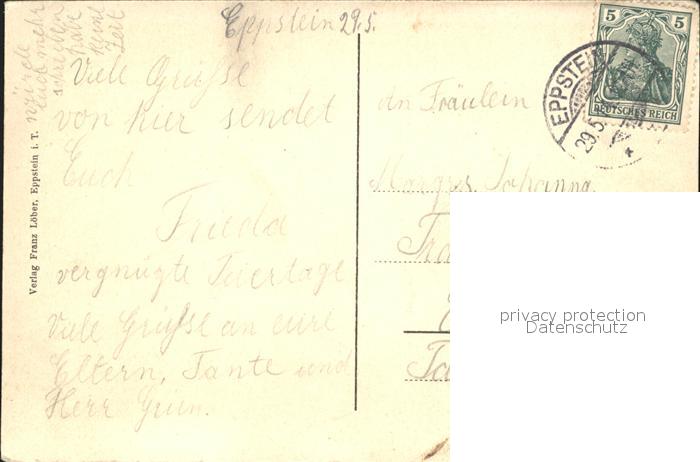 Eppstein 29.5.
Viele Grüsse
von hier sendet
Euch
Frieda
vergnügte Feiertage
Viele Grüsse an eure
Eltern, Tante und
Herr Grün.
würde
euch mehr
schreiben
habe
keine
Zeit
Verlag Franz Löber, Eppstein i. T.
An Fräulein
Johanna
5 5
DEUTSCHES REICH
EPPSTEIN
29.5.
privacy protection
Datenschutz